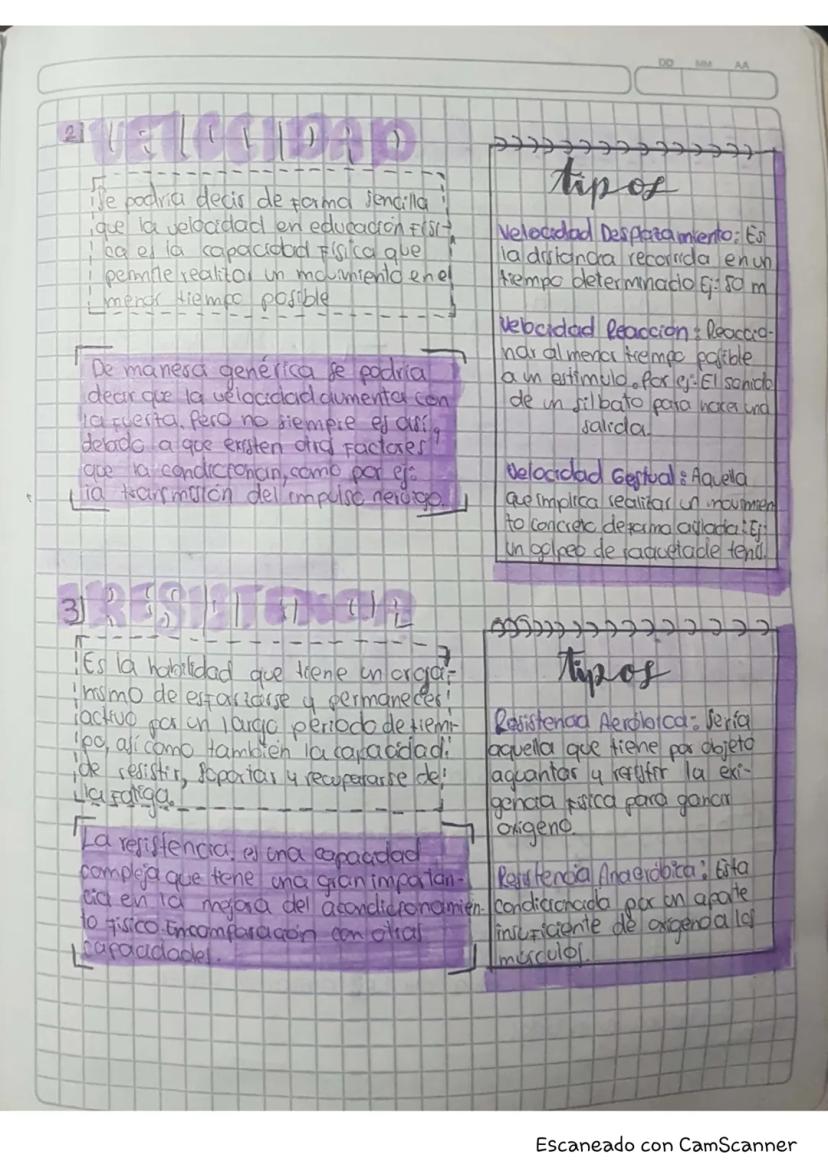 DD MM AA
2) VELOCIDAD
Se podria decir de forma sencilla
que la velocidad en educación Físi-
ca es la capacidad Física que
permite realizar un movimiento en el
menor tiempo posible
De manera genérica se podria
decir que la velocidad aumenta con
la fuerza. Pero no siempre es así,
debido a que existen otros Factores
que la condicionan, como por ej:
la transmisión del impulso nervioso.
tipos
Velocidad Desplazamiento: Es
la distancia recorrida en un
tiempo determinado Ej: 50 m
Velocidad Reacción: Reaccio-
nar al menor tiempo posible
a un estimulo. Por ej: El sonido
de un silbato para hacer una
salida.
Velocidad Gestual: Aquella
que implica realizar un movimien
to concreto de forma aislada: Ej:
un golpeo de raqueta de tenis.
3) RESISTENCIA
Es la habilidad que tiene un orga-
nismo de esforzarse y permanecer
activo por un largo periodo de tiem-
po, así como también la capacidad
de resistir, soportar y recuperarse de
la fatiga.
La resistencia, es una capacidad
compleja que tiene una gran importan-
cia en la mejora del acondicionamien-
to físico. En comparación con otras
capacidades.
tipos
Resistencia Aeróbica: Sería
aquella que tiene por objeto
aguantar y resistir la exi-
gencia Física para ganar
oxigeno.
Resistencia Anaeróbica: Esta
condicionada por un aporte
insuficiente de oxigeno a los
músculos.
Escaneado con CamScanner